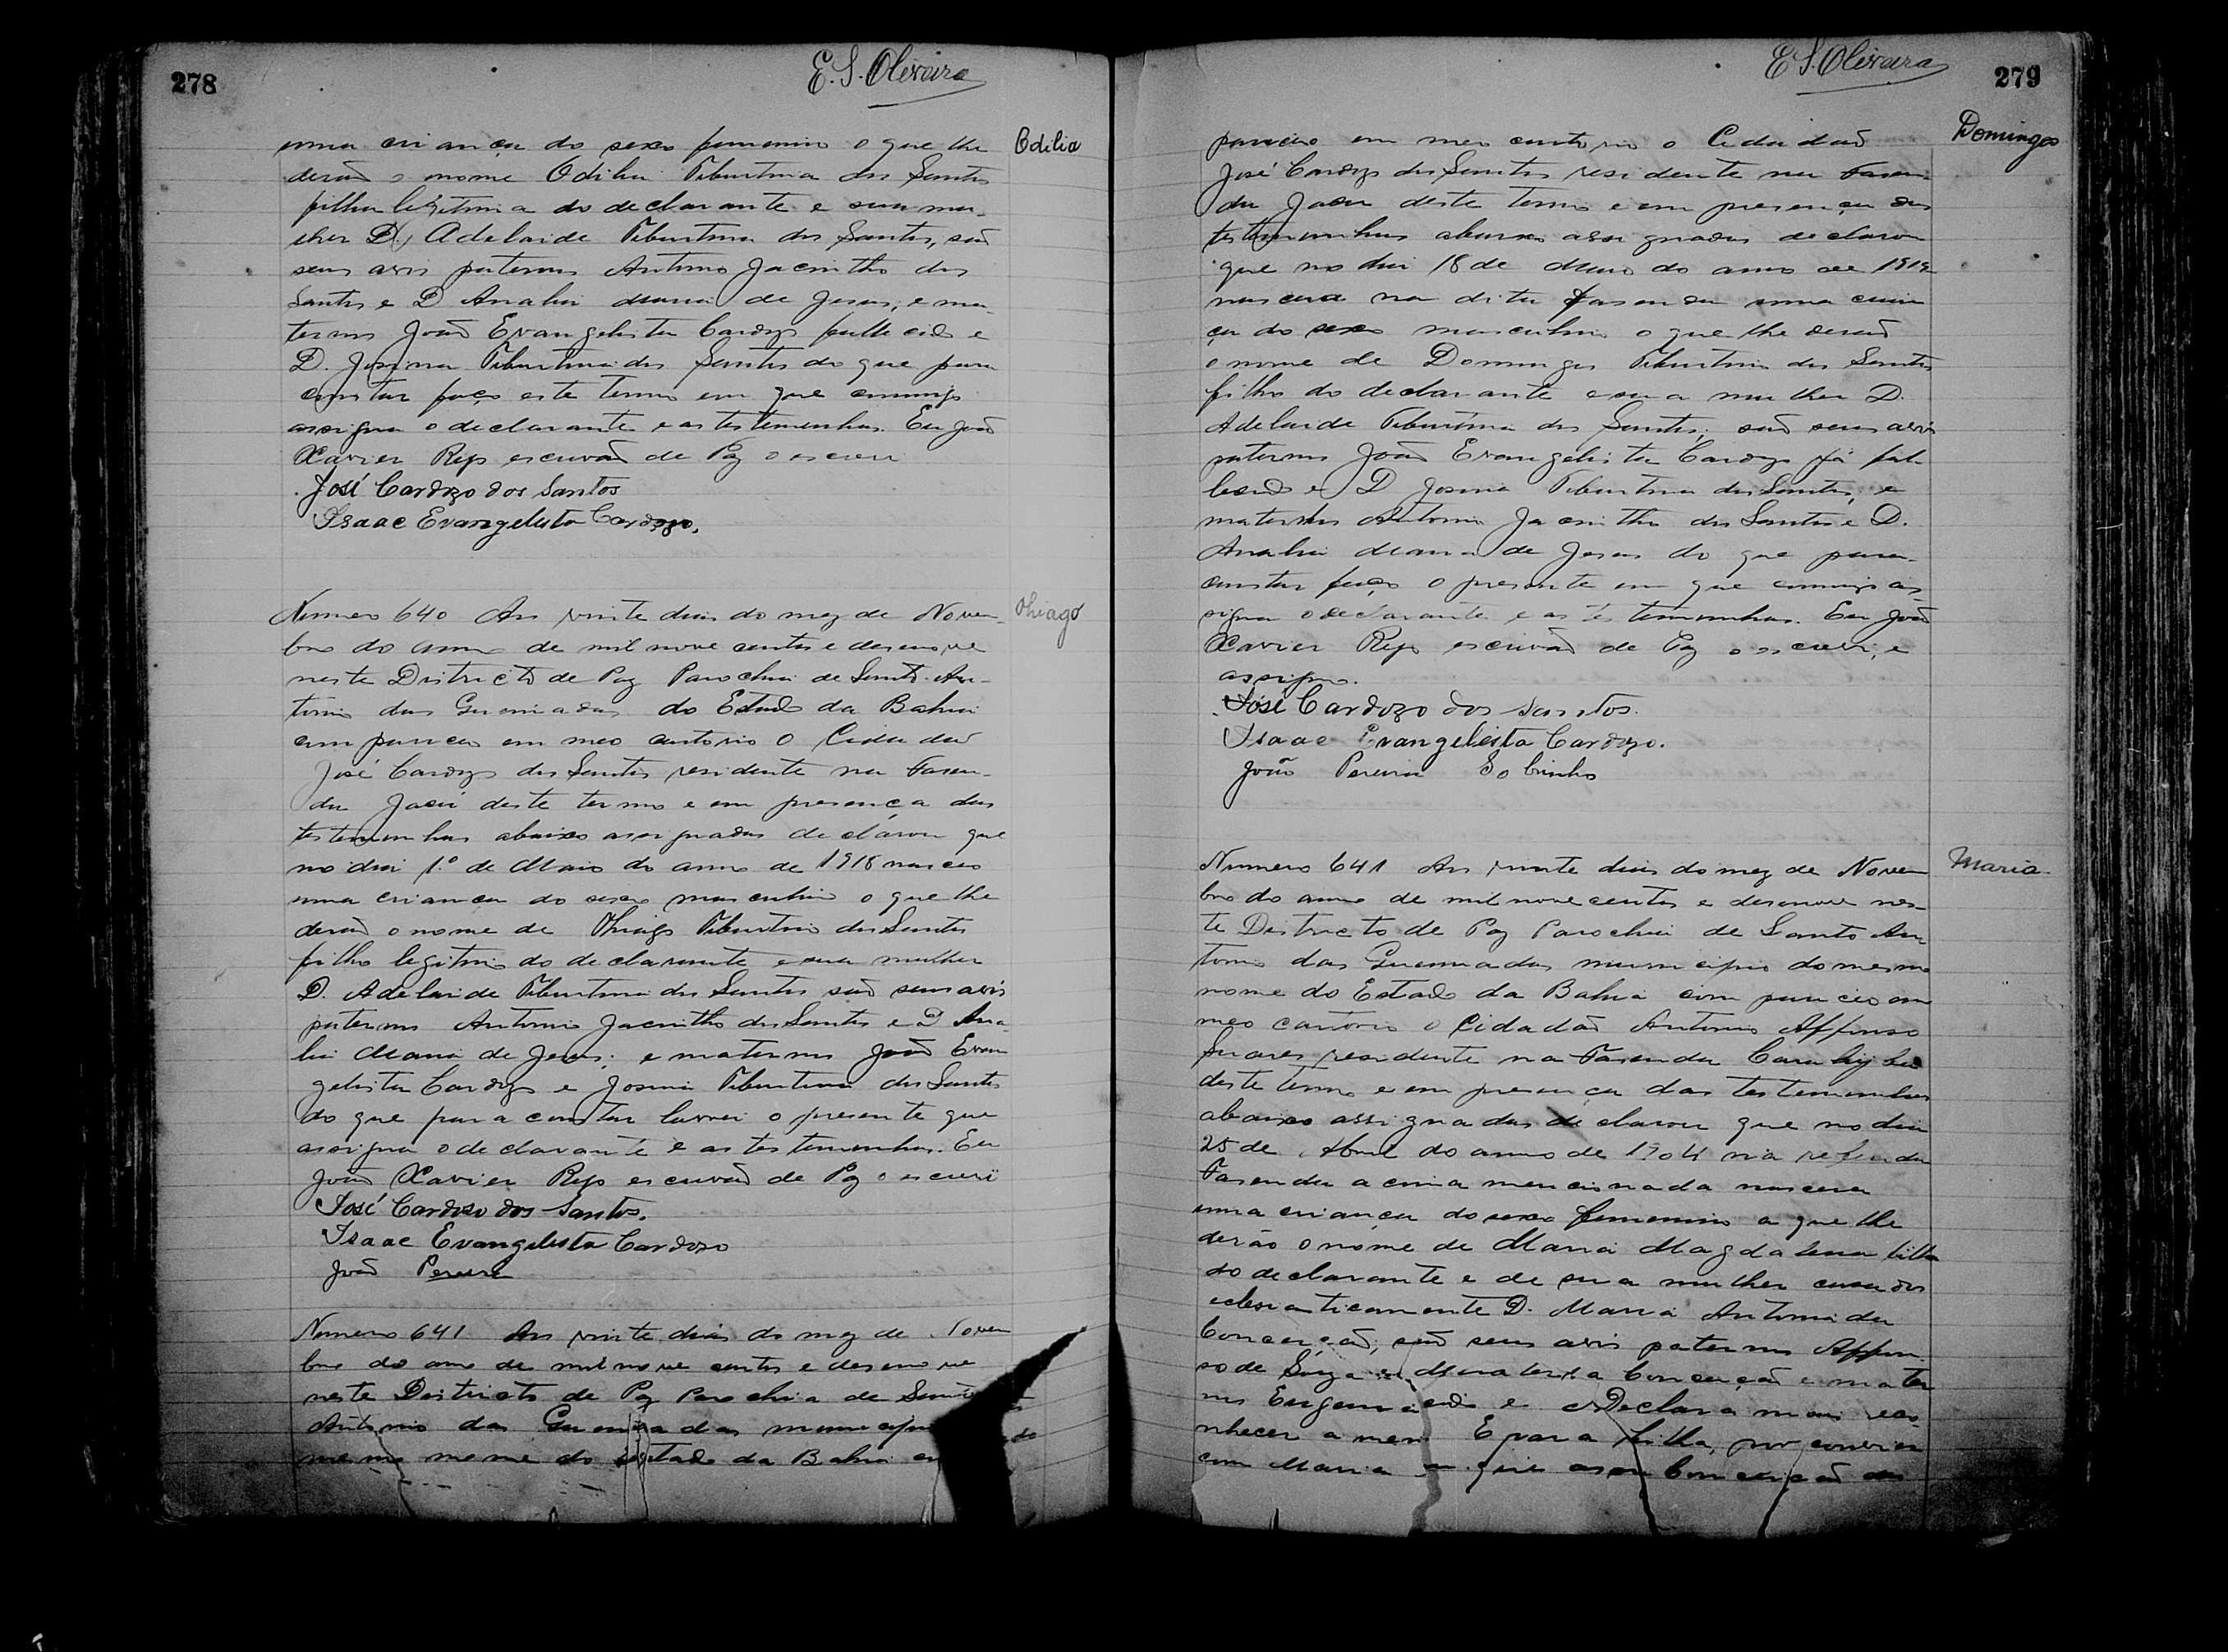 278
E. S. Oliveira
uma criança do sexo femenino o que lhe
Odilia
derão o nome Odilia Tiburtina dos Santos
filha legitima do declarante e sua mu-
lher D. Adelaide Tiburtina dos Santos, são
seus avós paternos Antonio Jacintho dos
Santos e D Analia Maria de Jesus, e ma-
ternos João Evangelista Cardozo fallecido e
D. Josina Tiburtina dos Santos do que para
constar faço este termo em que commigo
assigna o declarante e as testemunhas. Eu João
Xavier Rego escrivão de Paz o escrevi
José Cardozo dos Santos
Isaac Evangelista Cardozo.
Numero 640 Aos vinte dias do mez de Novem-
Thiago
bro do anno de mil nove centos e desenove
neste Districto de Paz Parochia de Santo An-
tonio das Queimadas do Estado da Bahia
compareceu em meo cartorio o Cidadão
José Cardozo dos Santos residente na Fasen-
da Jacú deste termo e em presença das
testemunhas abaixo assignadas declarou que
no dia 1º de Maio do anno de 1918 nasceo
uma criança do sexo masculino o que lhe
derão o nome de Thiago Tiburtino dos Santos
filho legitimo do declarante e sua mulher
D. Adelaide Tiburtina dos Santos são seus avós
paternos Antonio Jacintho dos Santos e D Ana-
lia Maria de Jesus; e maternos João Evan
gelista Cardozo e Josina Tiburtina dos Santos
do que para constar lavrei o presente que
assigna o declarante e as testemunhas. Eu
João Xavier Rego escrivão de Paz o escrevi
José Cardozo dos Santos.
Isaac Evangelista Cardozo
João Pereira
Numero 641 Aos vinte dias do mez de Novem
bro do anno de mil nove centos e desenove
neste Districto de Paz Parochia de Santo
Antonio das Queimadas municipio do
mesmo nome do Estado da Bahia
279
E S. Oliveira
pareceo em meo cartorio o Cidadão
Domingos
José Cardozo dos Santos residente na Fasen-
da Jacu deste termo e em presença das
testemunhas abaixo assignadas declarou
que no dia 18 de Maio do anno de 1919
nascera na dita Fasenda uma crian
ça do sexo masculino o que lhe derão
o nome de Domingos Tiburtino dos Santos
filho do declarante e sua mulher D.
Adelaide Tiburtina dos Santos; são seus avós
paternos João Evangelista Cardozo já fal-
lecido e D Josina Tiburtina dos Santos, e
maternos Antonio Jacintho dos Santos e D.
Analia Maria de Jesus do que para
constar faço o presente em que commigo as
signa o declarante e as testemunhas. Eu João
Xavier Rego escrivão de Paz o escrevi, e
assigno.
José Cardozo dos Santos.
Isaac Evangelista Cardozo.
João Pereira Sobrinho
Numero 641 Aos vinte dias do mez de Novem
Maria.
bro do anno de mil nove centos e desenove nes-
te Districto de Paz Parochia de Santo An-
tonio das Queimadas municipio do mesmo
nome do Estado da Bahia compareceo em
meo cartorio o Cidadão Antonio Affonso
Soares residente na Fasenda
deste termo e em presença das testemunhas
abaixo assignadas declarou que no dia
25 de Abril do anno de 1904 na referida
Fasenda acima mencionada nascera
uma criança do sexo femenino a que lhe
derão o nome de Maria Magdalena filha
do declarante e de sua mulher casados
eclesiasticamente D. Maria Antonia da
Conceição; são seus avós paternos Affon
so de Souza e Conceição e mater
nos e Declara mais reco-
nhecer a filha, por
com Maria Conceição